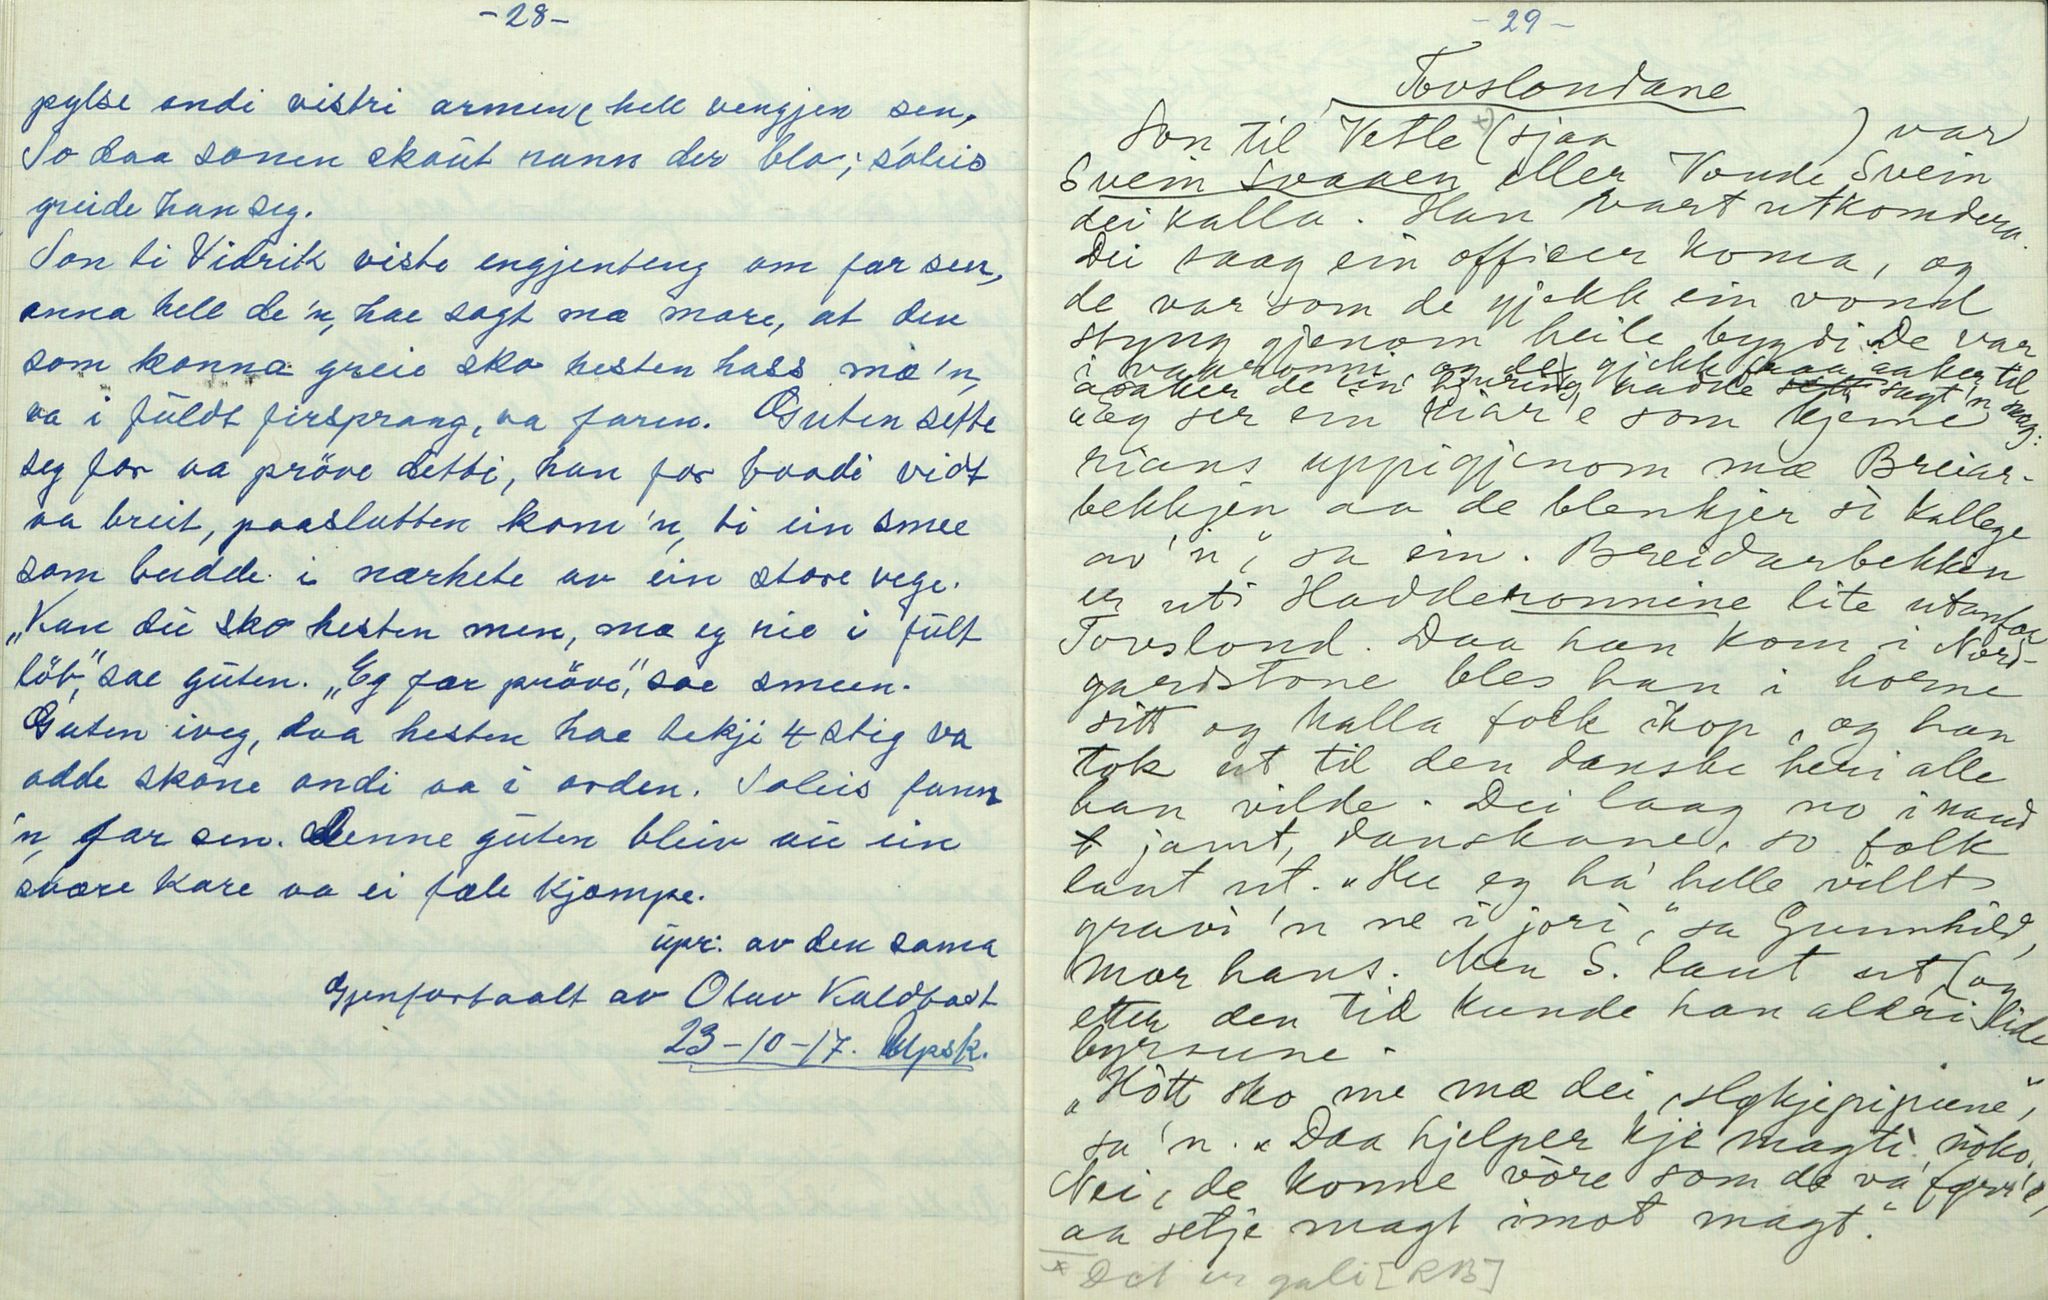 -28-
pylse ondi vistri armen (hell vengjen sen.
So daa sonen skaut nann der blo; soleis
greide han seg.
Son ti Vidrik viste engjenteng om far sen,
anna hell de'n, hae sagt mæ more, at den
som konna greie sko hesten hass mæ'n,
va i fuldt firsprang, va faren. Guten sette
seg for aa pröve detti, han for baadi vidt
aa breit, paaslutten kom'n, ti ein smee
som budde i nærhete av ein store vege.
„Kan du sko hesten men, mæ eg rie i fült
löb", sae guten. „Eg fær pröve", sae smeen.
Guten iveg, daa hesten hae tekji 4 stig va
adde skone ondi aa i orden. Soleis fann
'n, far sen. Denne güten bleiv au ein
svære kare aa ei fæle kjæmpe.
üpr. av den sama
Gjenfortaalt av Olav Kaldbast
23-10-17. Upsk.
-29-
Tovslondane
Son til Vetle x) (sjaa ) var
Svein Svaaen eller Vonde Svein
dei kalla. Han vart utkomdera.
Dei saag ein officer koma, og
de var som de gjekk ein vond
styng gjenom heile bygdi. De var
i vaaronni og de gjekk fraa aaker til
aaker de ein hjuring hadde sagt'n snag:
„Eg ser ein kiar'e som kjeme
rians uppigjenom mæ Breiar-
bekkjen aa de blenkjer si kallege
av'n", sa ein. Breidarbekken
er uti Hadderonnine lite utanfor
Tovslond. Daa han kom i Nord-
gardstone bles han i horne
sitt og kalla folk ihop, og han
tok ut til den danske heri alle
han vilde. Dei laag no i kand
t jamt, danskane, so folk
laut ut. „Hee eg ha helle villt
gravi'n ne i jori," sa Gunnhild,
mor hans. Men S. laut ut, (og
etter den tid kunde han aldri lide
byrsune.
„Hött sko me mæ dei slykjepipune",
sa'n. „Daa hjelper kje magti noko.
Nei, de konne vöre som de va förr'e,
aa setje magt imot magt."
x Det er gali [RB]